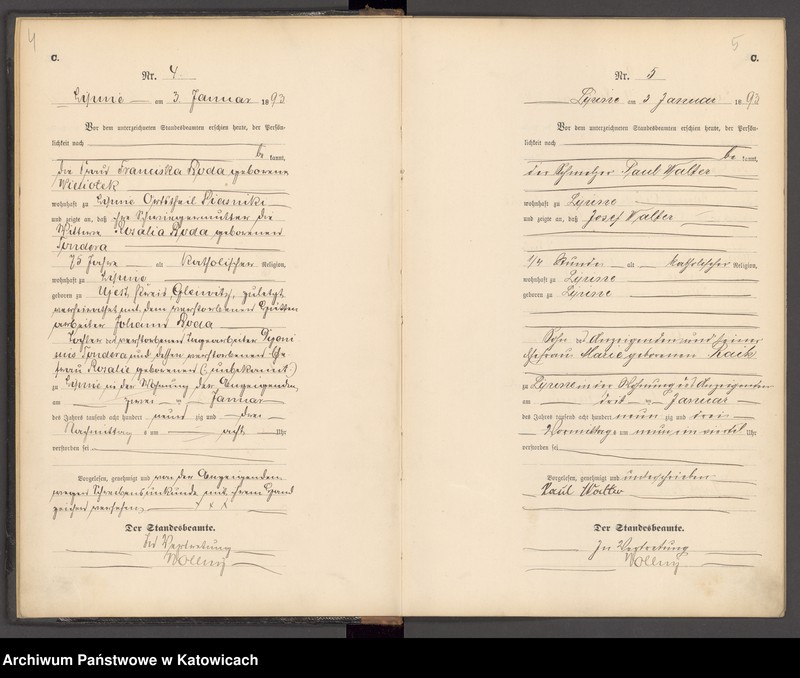 4
C.
Nr. 4
Lipine am 3. Januar 1893
Vor dem unterzeichneten Standesbeamten erschien heute, der Persön-
lichkeit nach
be kannt,
die Frau Franciska Roda geborene
wohnhaft zu Lipine Ortstheil Piasniki
und zeigte an, daß ihre Schwiegermutter die
Wittwe Rosalia Roda geborenen
Sondera
75 Jahre alt Katholischer Religion,
wohnhaft zu Lipine
geboren zu Ujest, Kreis zuletzt
verheirathet mit dem verstorbenen Hütten
arbeiter Johann Roda
Tochter des verstorbenen
Sondera und dessen verstorbenen Ehe
frau Rosalie geborenen (unbekannt)
zu Lipine in der Wohnung der Anzeigenden,
am zwei ten Januar
des Jahres tausend acht hundert neun zig und drei
Nachmittag s um acht Uhr
verstorben sei
Vorgelesen, genehmigt und von der Anzeigenden
wegen Schreibensunkunde mit ihrem Hand
zeichen versehen + + +
Der Standesbeamte.
In Vertretung
Wolny
5
C.
Nr. 5
Lipine am 3 Januar 1893
Vor dem unterzeichneten Standesbeamten erschien heute, der Persön-
lichkeit nach
be kannt,
der Schmelzer Paul Walter
wohnhaft zu Lipine
und zeigte an, daß Josef Walter
1/4 Stunde alt katholischer Religion,
wohnhaft zu Lipine
geboren zu Lipine
Sohn des Anzeigenden und seiner
Ehefrau Marie geborenen
zu Lipine in der Wohnung des Anzeigenden
am drit ten Januar
des Jahres tausend acht hundert neun zig und drei
Vormittags um neun ein viertel Uhr
verstorben sei
Vorgelesen, genehmigt und unterschrieben
Paul Walter
Der Standesbeamte.
In Vertretung
Wolny
Archiwum Państwowe w Katowicach